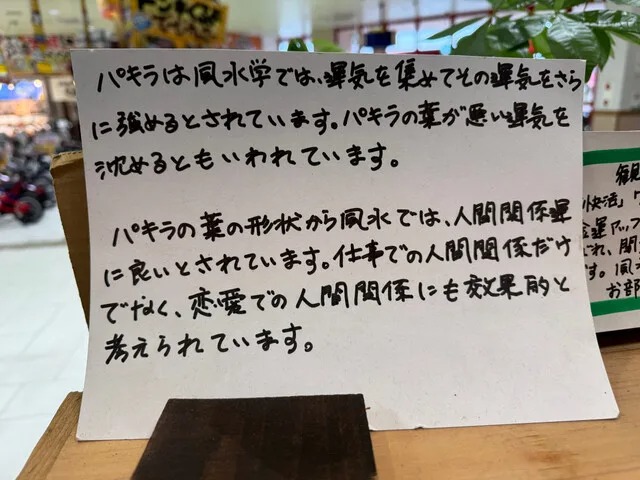 パキラは風水学では、運気を集めてその運気をさら
に強めるとされています。パキラの葉が悪い運気を
沈めるともいわれています。
パキラの葉の形状から風水では、人間関係運
に良いとされています。仕事での人間関係だけ
でなく、恋愛での人間関係にも効果的と
考えられています。
快活」
金運アップ
れ、
す。風水
お部